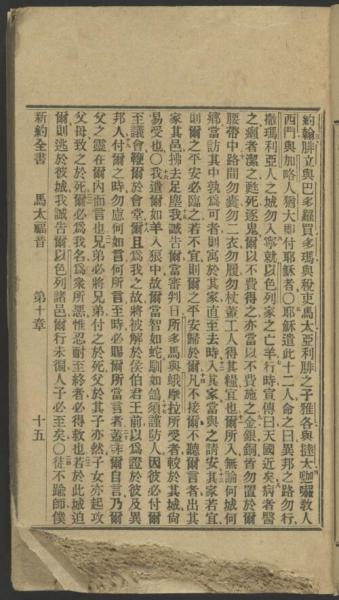 約翰腓立與巴多羅買多瑪與稅吏馬太亞利腓之子雅各與達太
西門與加略人猶大即付耶穌者○耶穌遣此十二人命之曰異邦之路勿行
撒瑪利亞人之城勿入寧就以色列家之亡羊行時宣傳曰天國近矣病者醫
之癩者潔之甦死逐鬼爾以不費得之亦當以不費施之金銀銅皆勿置於爾
腰帶中路間勿囊勿二衣勿履勿杖蓋工人得其糧宜也爾所入無論何城何
鄉當訪其中孰為可者則寓於其家直至去時入其家當與之請安其家若宜
則爾之平安必臨之若不宜則爾之平安歸於爾凡不接爾不聽爾言者出其
家其邑拂去足塵我誠告爾當審判日所多馬與蛾摩拉所受者較於其城尚
易受也○我遣爾如羊入狼中故爾當智如蛇馴如鴿須謹防人因彼必付爾
至議會鞭爾於會堂爾且為我之故將被解於侯伯君王前以為證於彼及異
邦人付爾之時勿慮何如言何所言至時必賜爾所當言者蓋非爾自言乃爾
父之靈在爾內而言也兄弟必將兄弟付之於死父於其子亦然子女亦起攻
父母致之於死爾必為我名為衆所惡惟忍耐至終者必得救也若於此城迫
爾則逃於彼城我誠告爾以色列諸邑行未徧人子必至矣○徒不踰師僕
新約全書 馬太福音 第十章 十五